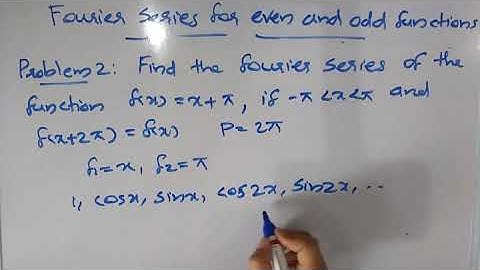 Fourier series for even and odd functions
Problem 2: Find the fourier series of the
function f(x) = x+π, if -π<x<π and
f(x+2π) = f(x) P = 2π
f1 = x, f2 = π
1, cosx, sinx, cos2x, sin2x, ..